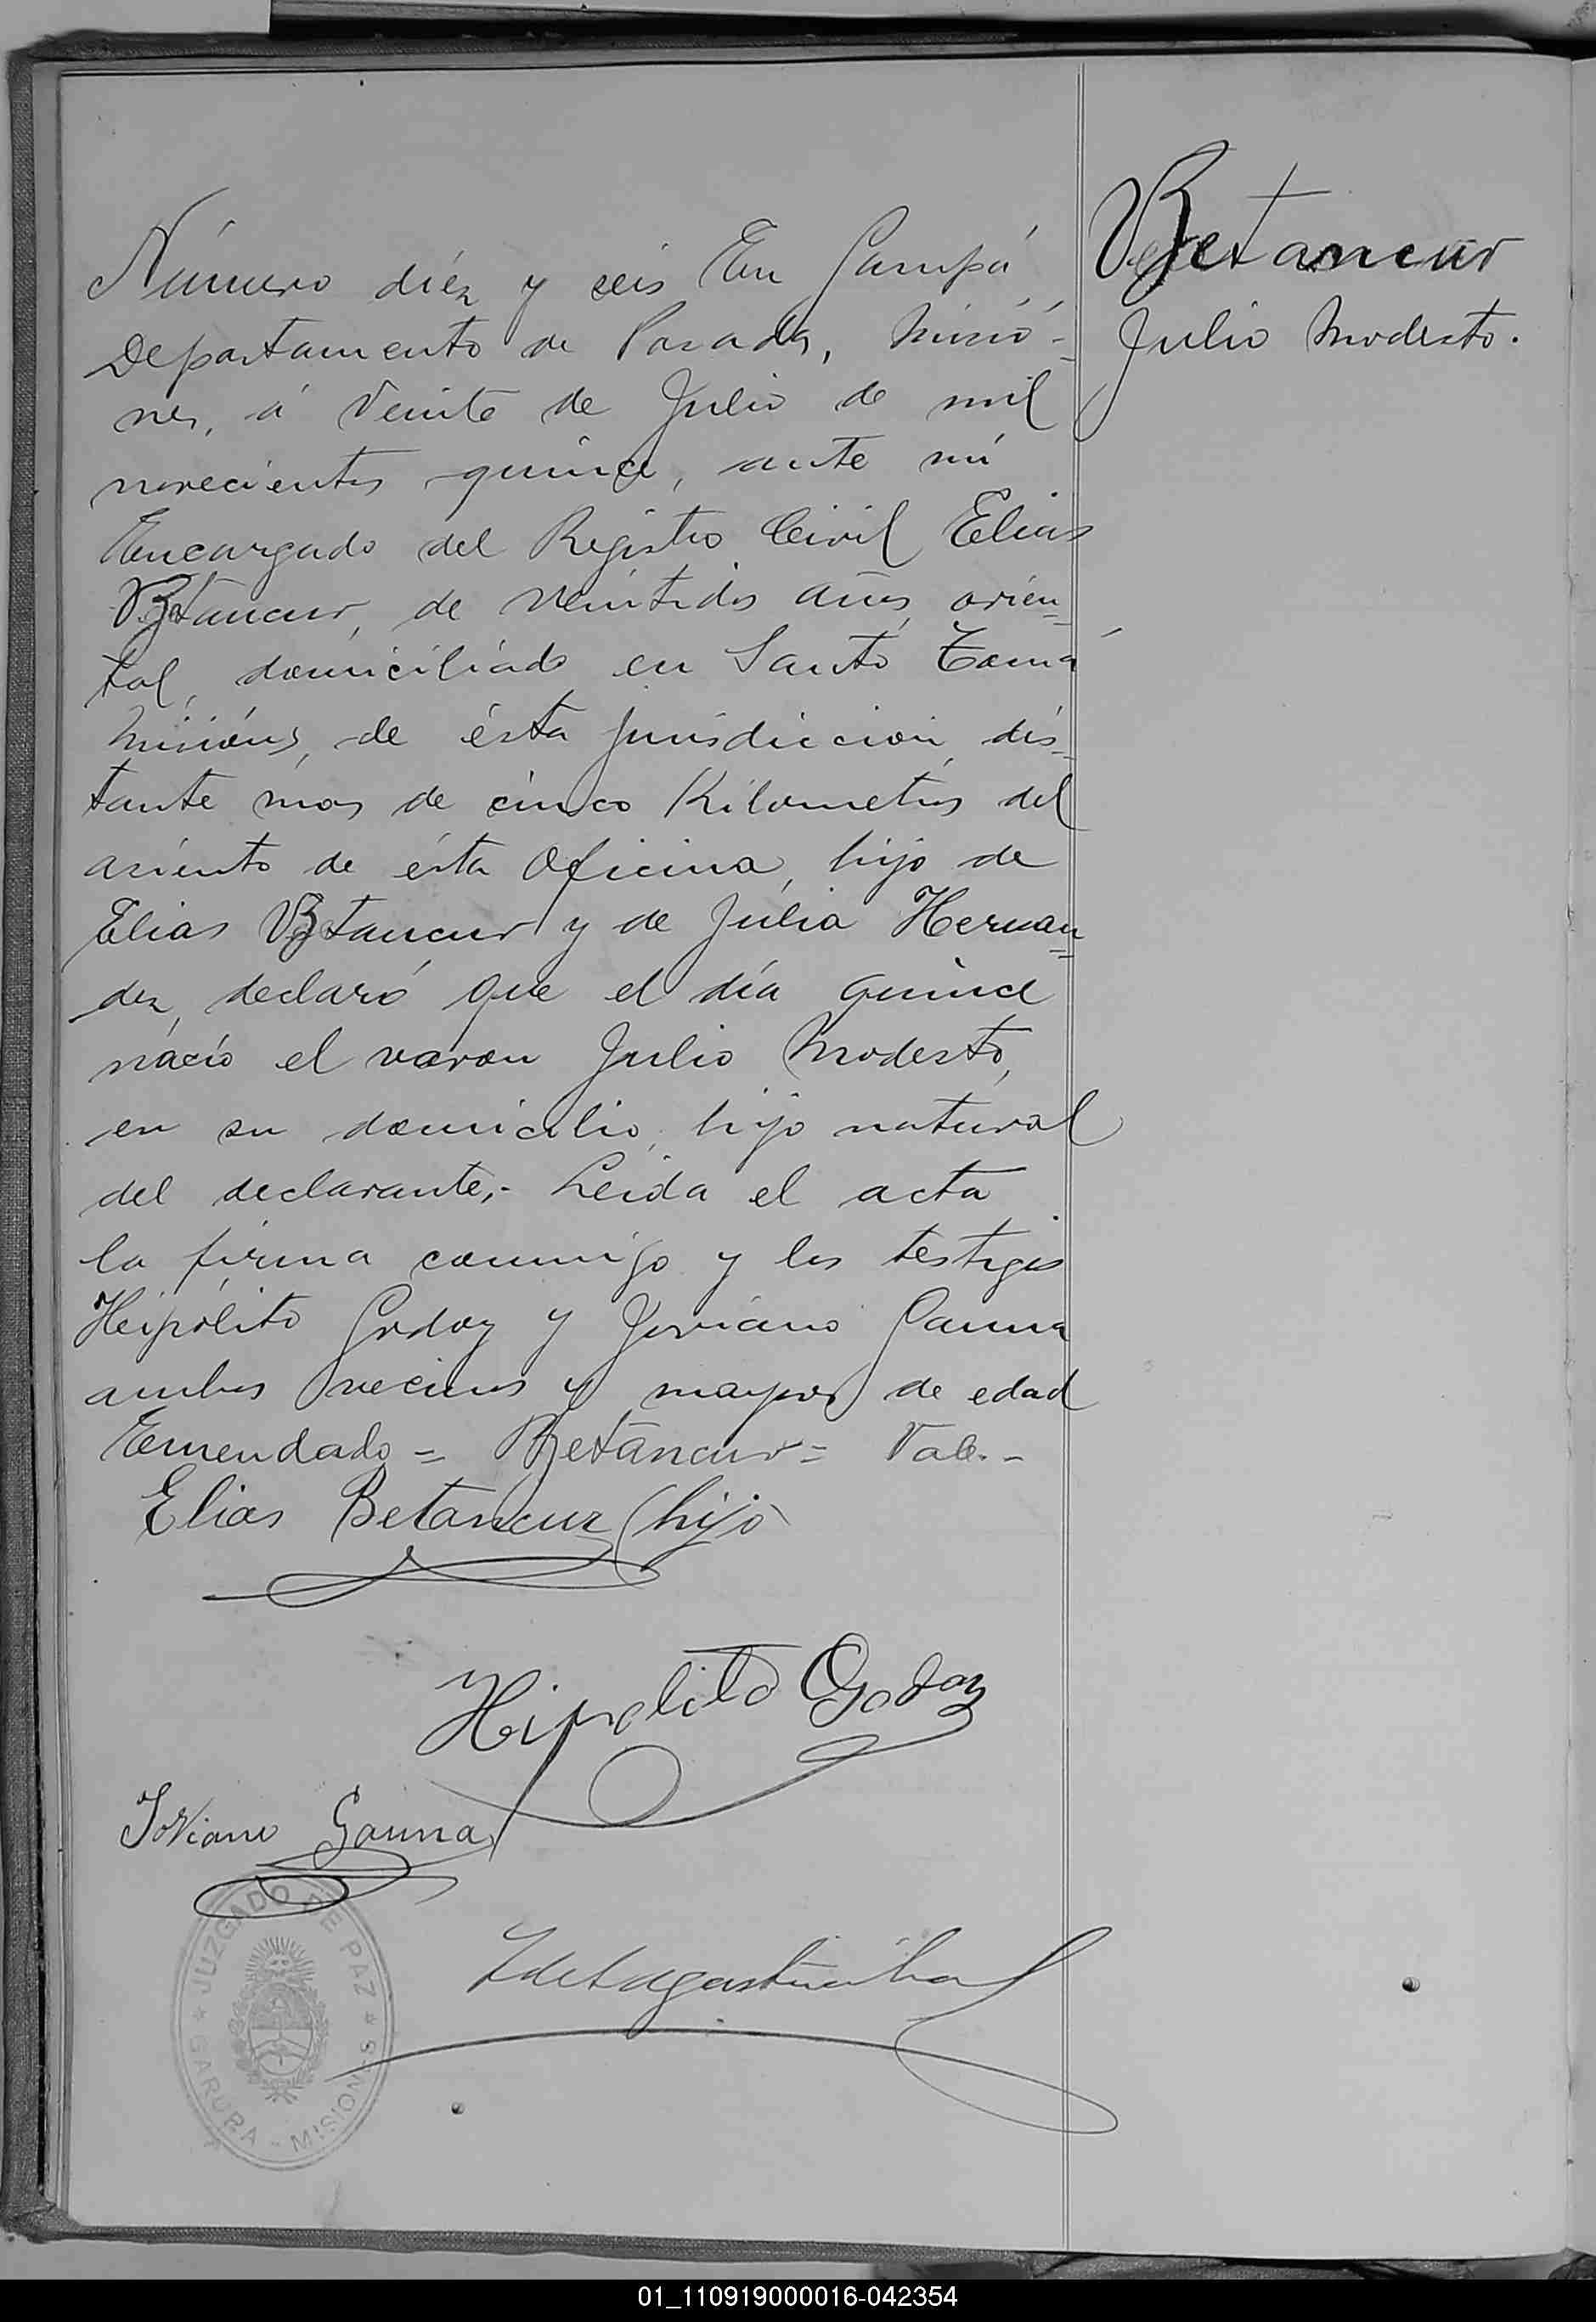 Betancur
Julio Modesto.
Número diéz y seis En Garupá
Departamento de Posadas, Misió-
nes, á veinte de Julio de mil
novecientos quince, ante mi
Encargado del Registro Civil Elias
Betancur, de veintidos años, orien-
tal, domiciliado en Santo Tomá
Misiónes, de ésta jurisdiccion, dis-
tante mas de cinco Kilometros del
asiento de ésta Oficina, hijo de
Elias Betancur y de Julia Hernan-
dez, declaró que el día quince
nació el varon Julio Modesto,
en su domicilio, hijo natural
del declarante,- Leida el acta
la firma conmigo y los testigos
Heipólito Godoy y Joviano Gauna
ambos vecinos y mayores de edad
Emendado = Betancur = Vale.-
Elias Betancur (hijo)
Hipolito Godoy
Joviano Gauna
JUZGADO DE PAZ
GARUPA - MISIONES
01_110919000016-042354